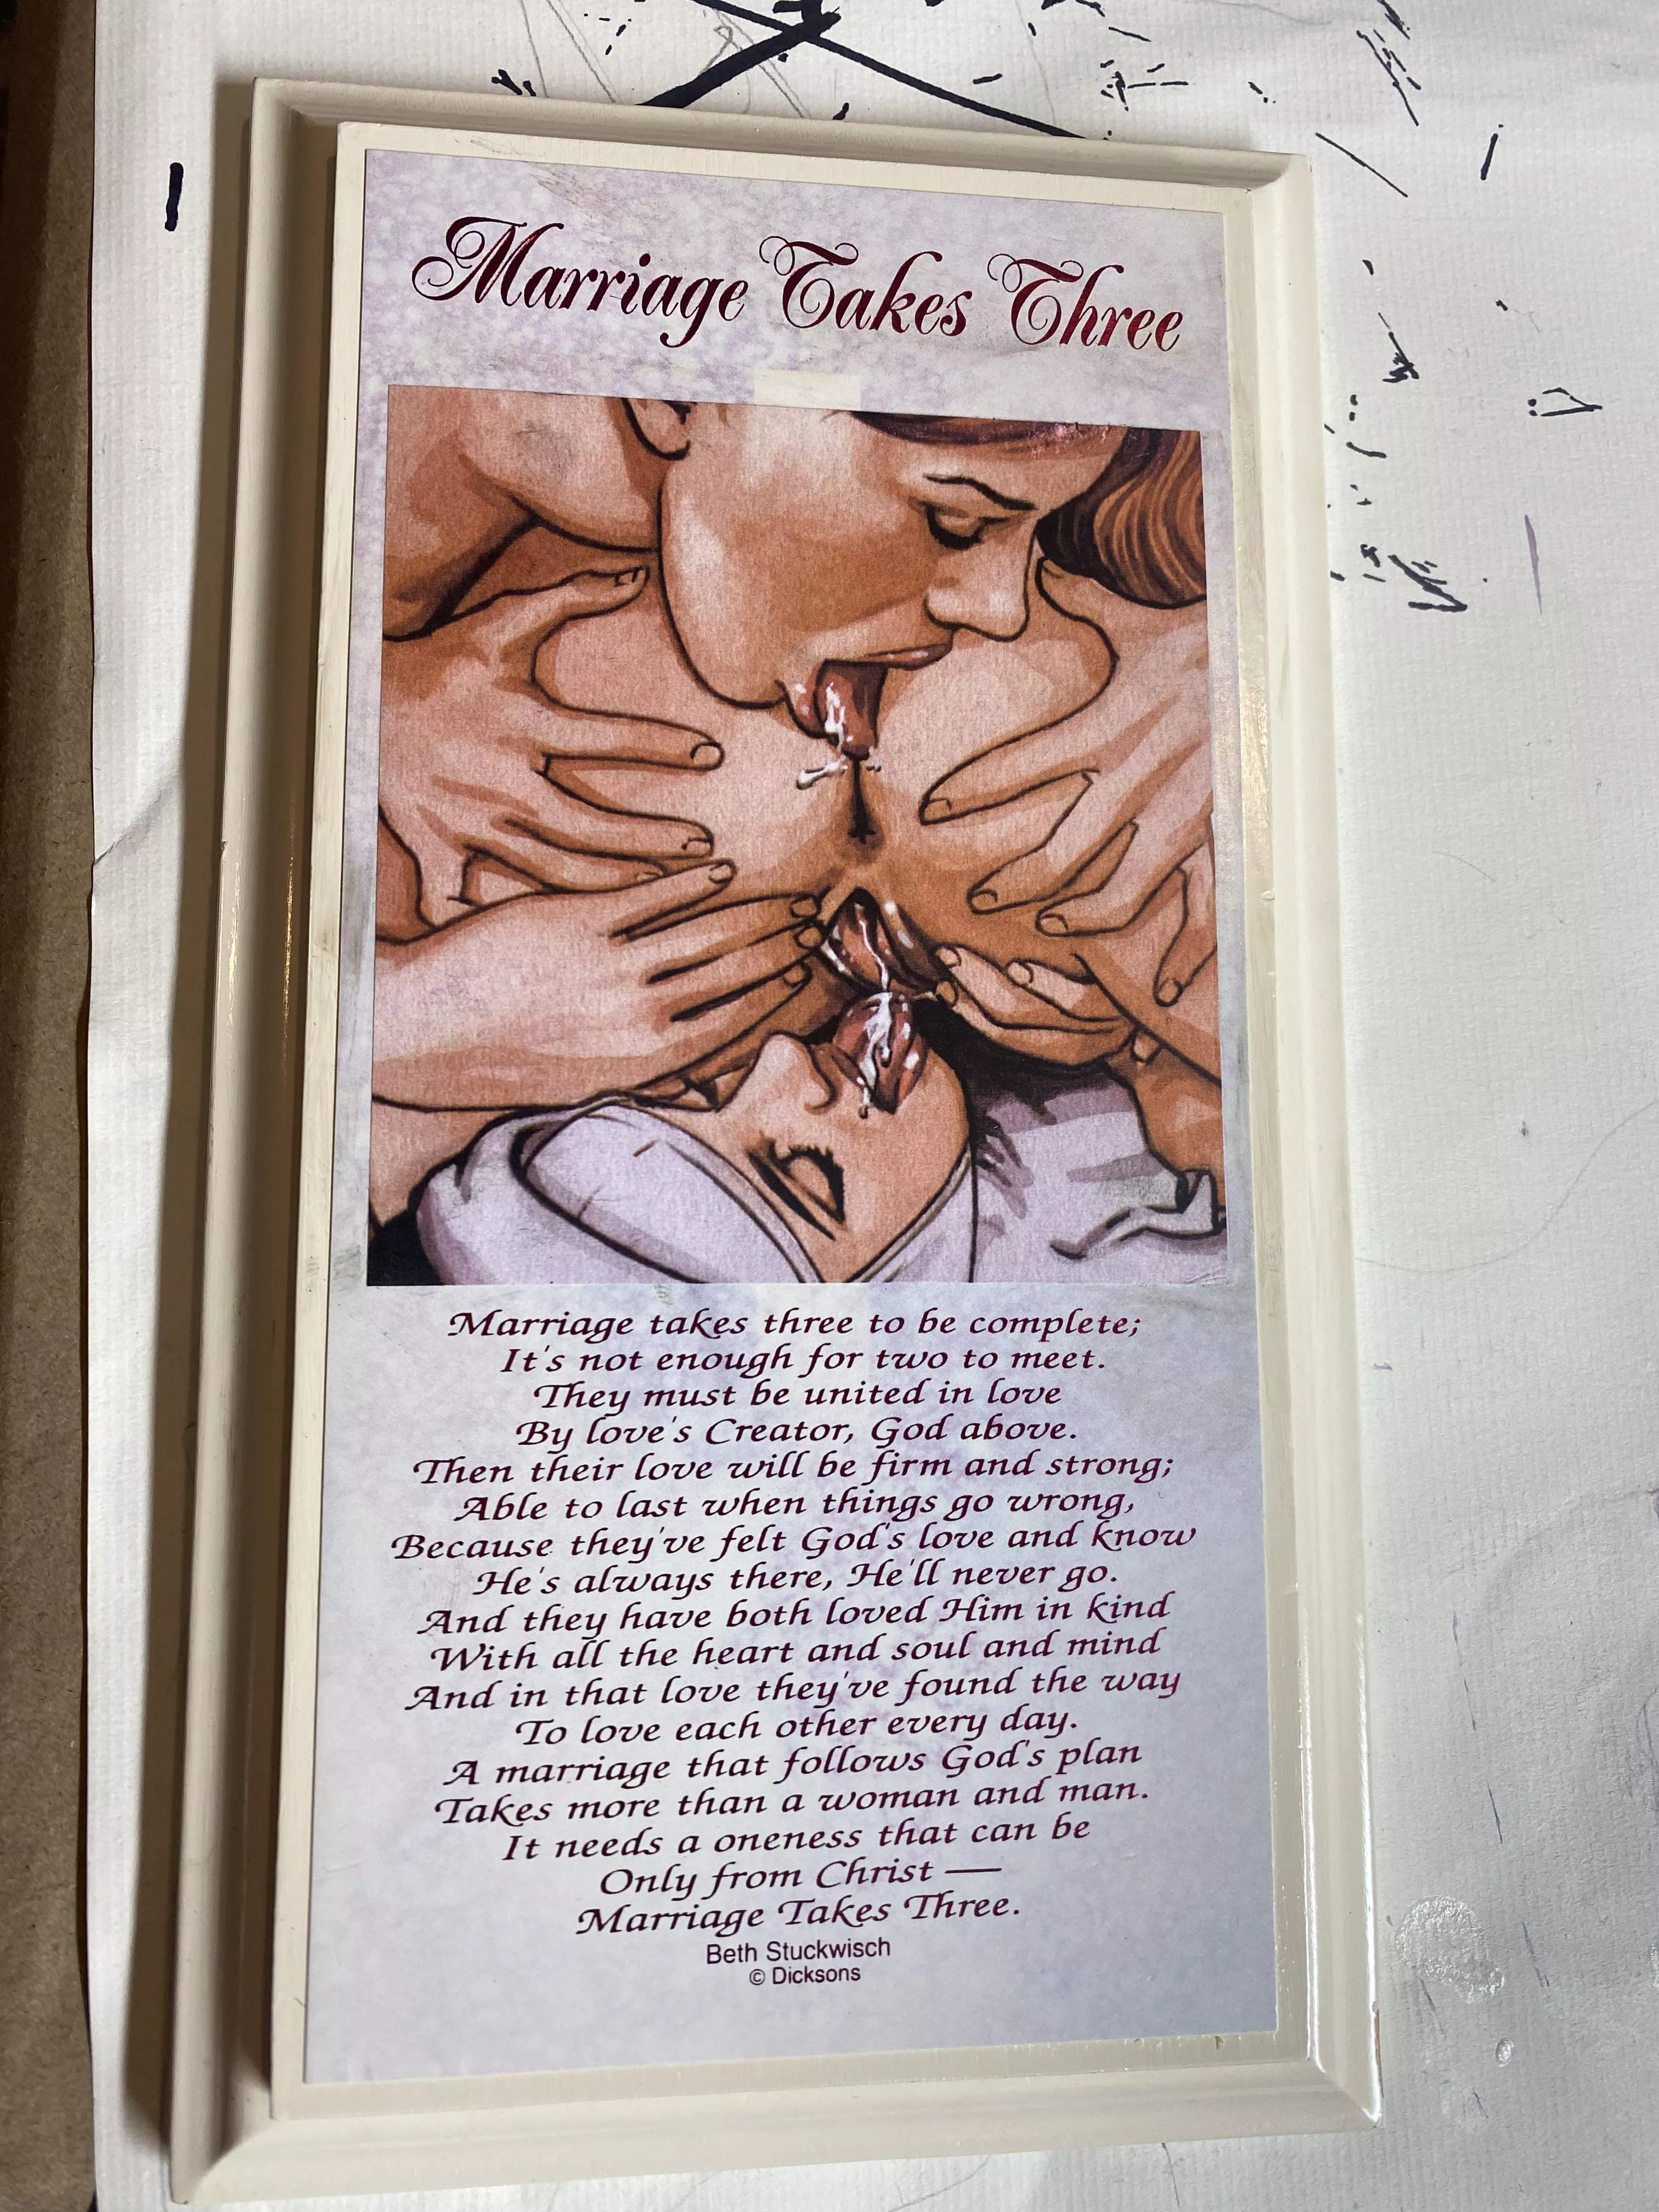 Marriage Takes Three
Marriage takes three to be complete;
It's not enough for two to meet.
They must be united in love
By love's Creator, God above.
Then their love will be firm and strong;
Able to last when things go wrong,
Because they've felt God's love and know
He's always there, He'll never go.
And they have both loved Him in kind
With all the heart and soul and mind
And in that love they've found the way
To love each other every day.
A marriage that follows God's plan
Takes more than a woman and man.
It needs a oneness that can be
Only from Christ —
Marriage Takes Three.
Beth Stuckwisch
© Dicksons